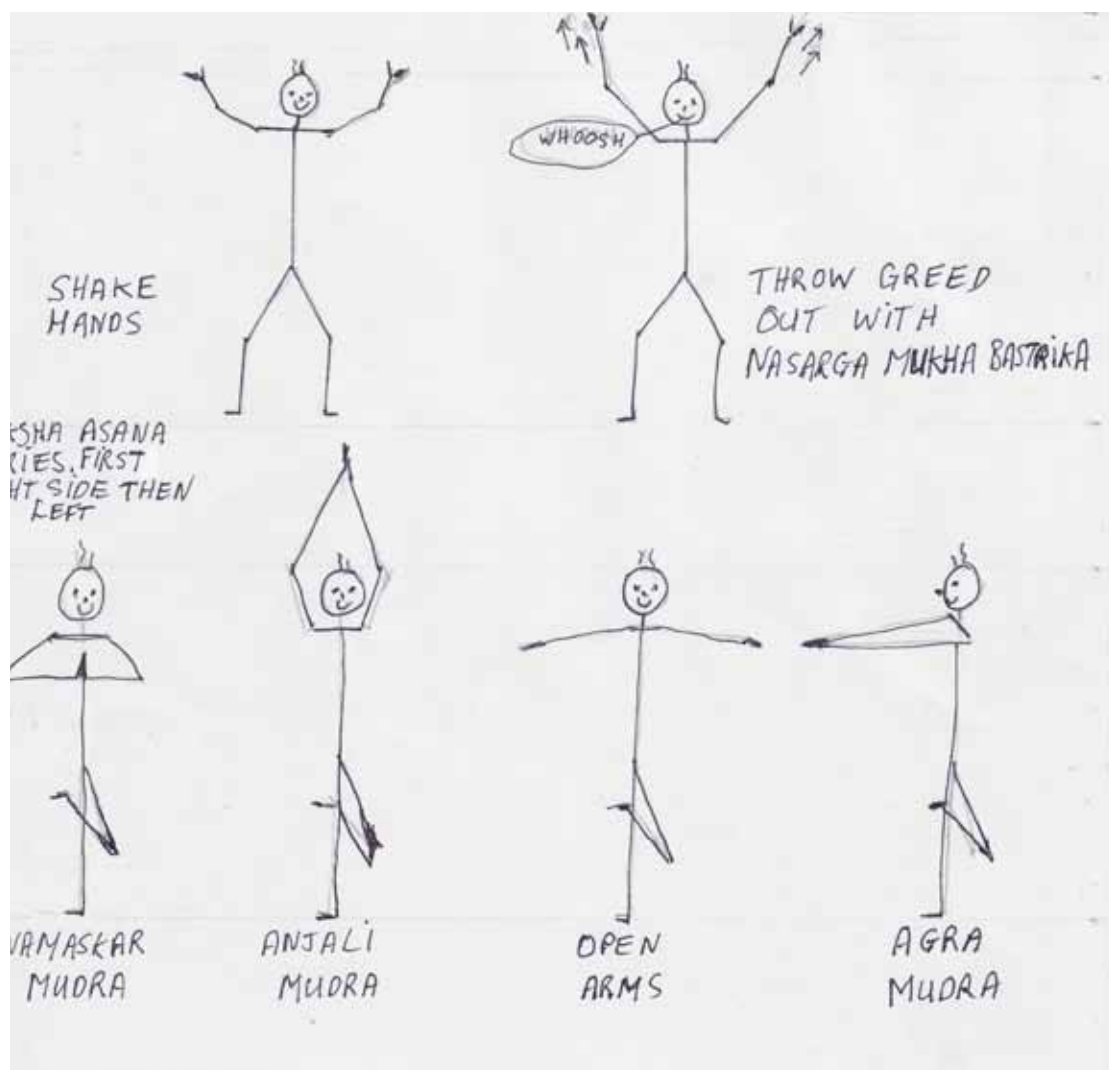 WHOOSH
SHAKE
HANDS
THROW GREED
OUT WITH
NASARGA MUKHA BASTRIKA
KSHA ASANA
RIES. FIRST
HT SIDE THEN
LEFT
NAMASKAR
MUDRA
ANJALI
MUDRA
OPEN
ARMS
AGRA
MUDRA